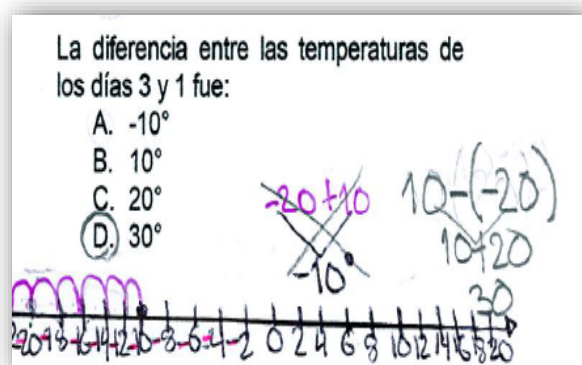 La diferencia entre las temperaturas de
los días 3 y 1 fue:
A. -10°
B. 10°
C. 20°
D. 30°
-20+10
-10°
10-(-20)
10+20
30
-20-18-16-14-12-10-8-6-4-2 0 2 4 6 8 10 12 14 16 18 20